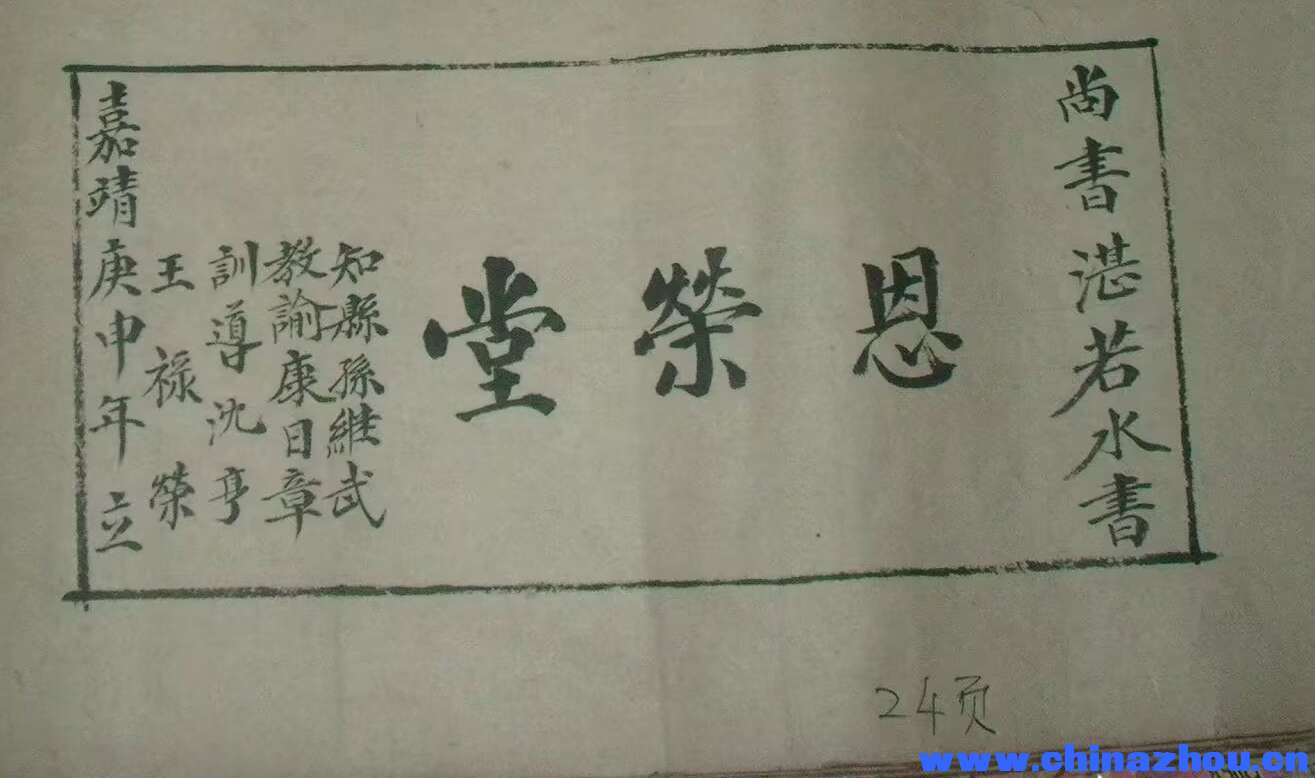 尚書湛若水書
恩榮堂
知縣孫維武
教諭康日章
訓導沈亨
王祿榮
嘉靖庚申年立
24页
www.chinazhou.cn